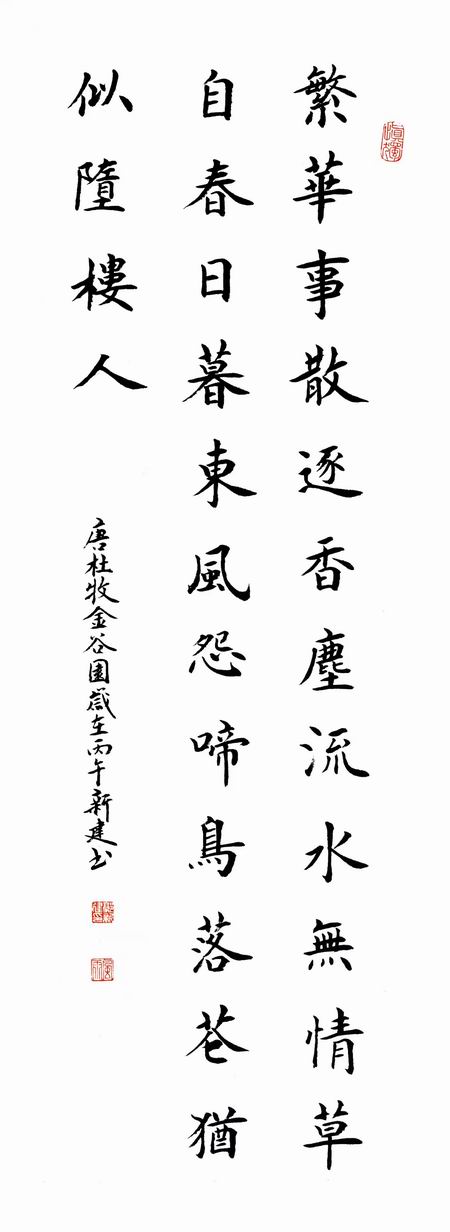 繁華事散逐香塵流水無情草
自春日暮東風怨啼鳥落花猶
似墮樓人
唐杜牧金谷園歲在丙午新建书